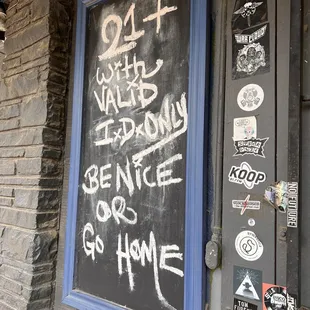 21+
with
VALID
I.D. ONLY
BE NICE
OR
GO HOME
WAR CLOUD
KOOP
NO FUTURE
TOM